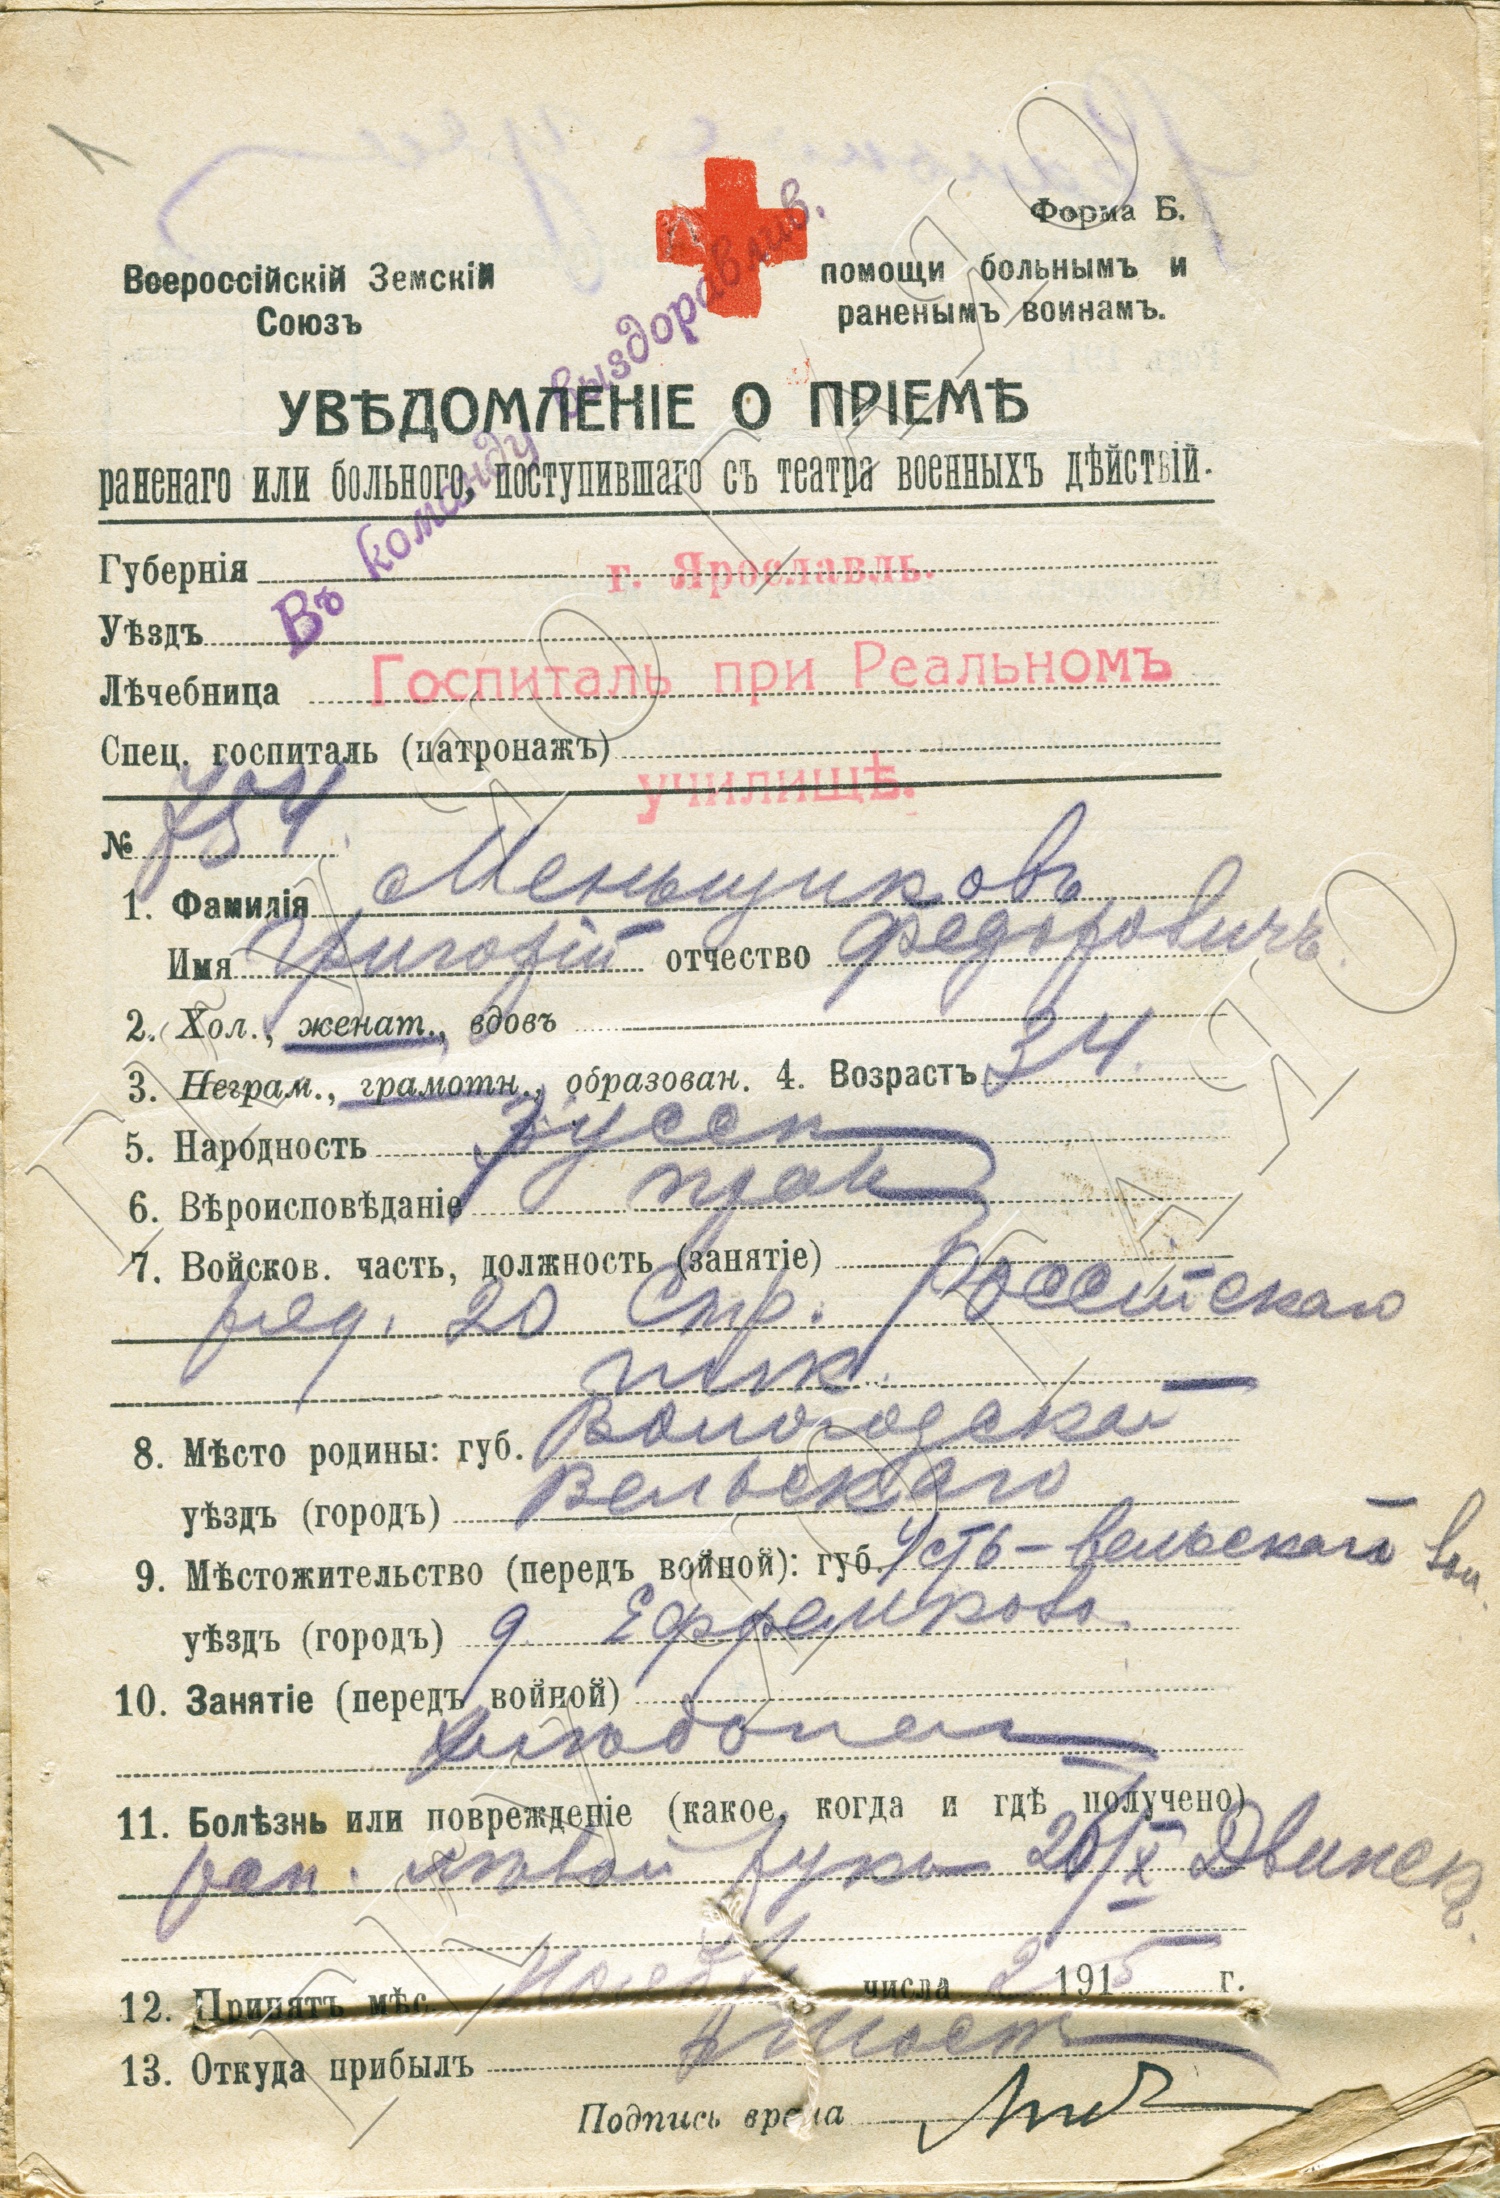 1
Форма Б.
Всероссійскій Земскій
Союзъ
помощи больнымъ и
раненымъ воинамъ.
Въ команду выздоравлив.
УВѢДОМЛЕНІЕ О ПРІЕМѢ
раненаго или больного, поступившаго съ театра военныхъ дѣйствій.
Губернія г. Ярославль.
Уѣздъ
Лѣчебница Госпиталь при Реальномъ
Спец. госпиталь (патронажъ)
училищѣ.
№ 754.
1. Фамилія Меньщиковъ
Имя Григорій отчество Федоровичъ.
2. Хол., женат., вдовъ
3. Неграм., грамотн., образован. 4. Возрастъ 34.
5. Народность Русск
6. Вѣроисповѣданіе прав
7. Войсков. часть, должность (занятіе)
ряд. 20 Стр. Россійскаго
полк.
8. Мѣсто родины: губ. Вологодской
уѣздъ (городъ) Вельскаго
9. Мѣстожительство (передъ войной): губ. Усть-Вельскаго вол.
уѣздъ (городъ) д. Ефремково.
10. Занятіе (передъ войной)
хлѣбопаш
11. Болѣзнь или поврежденіе (какое, когда и гдѣ получено)
ран. лѣвой руки 20/X Двинскъ.
12. Принятъ мѣс. Ноября числа 2 1915 г.
13. Откуда прибылъ
Подпись врача
ГКУ ЯО ГАЯО
ГКУ ЯО ГАЯО
ГКУ ЯО ГАЯО